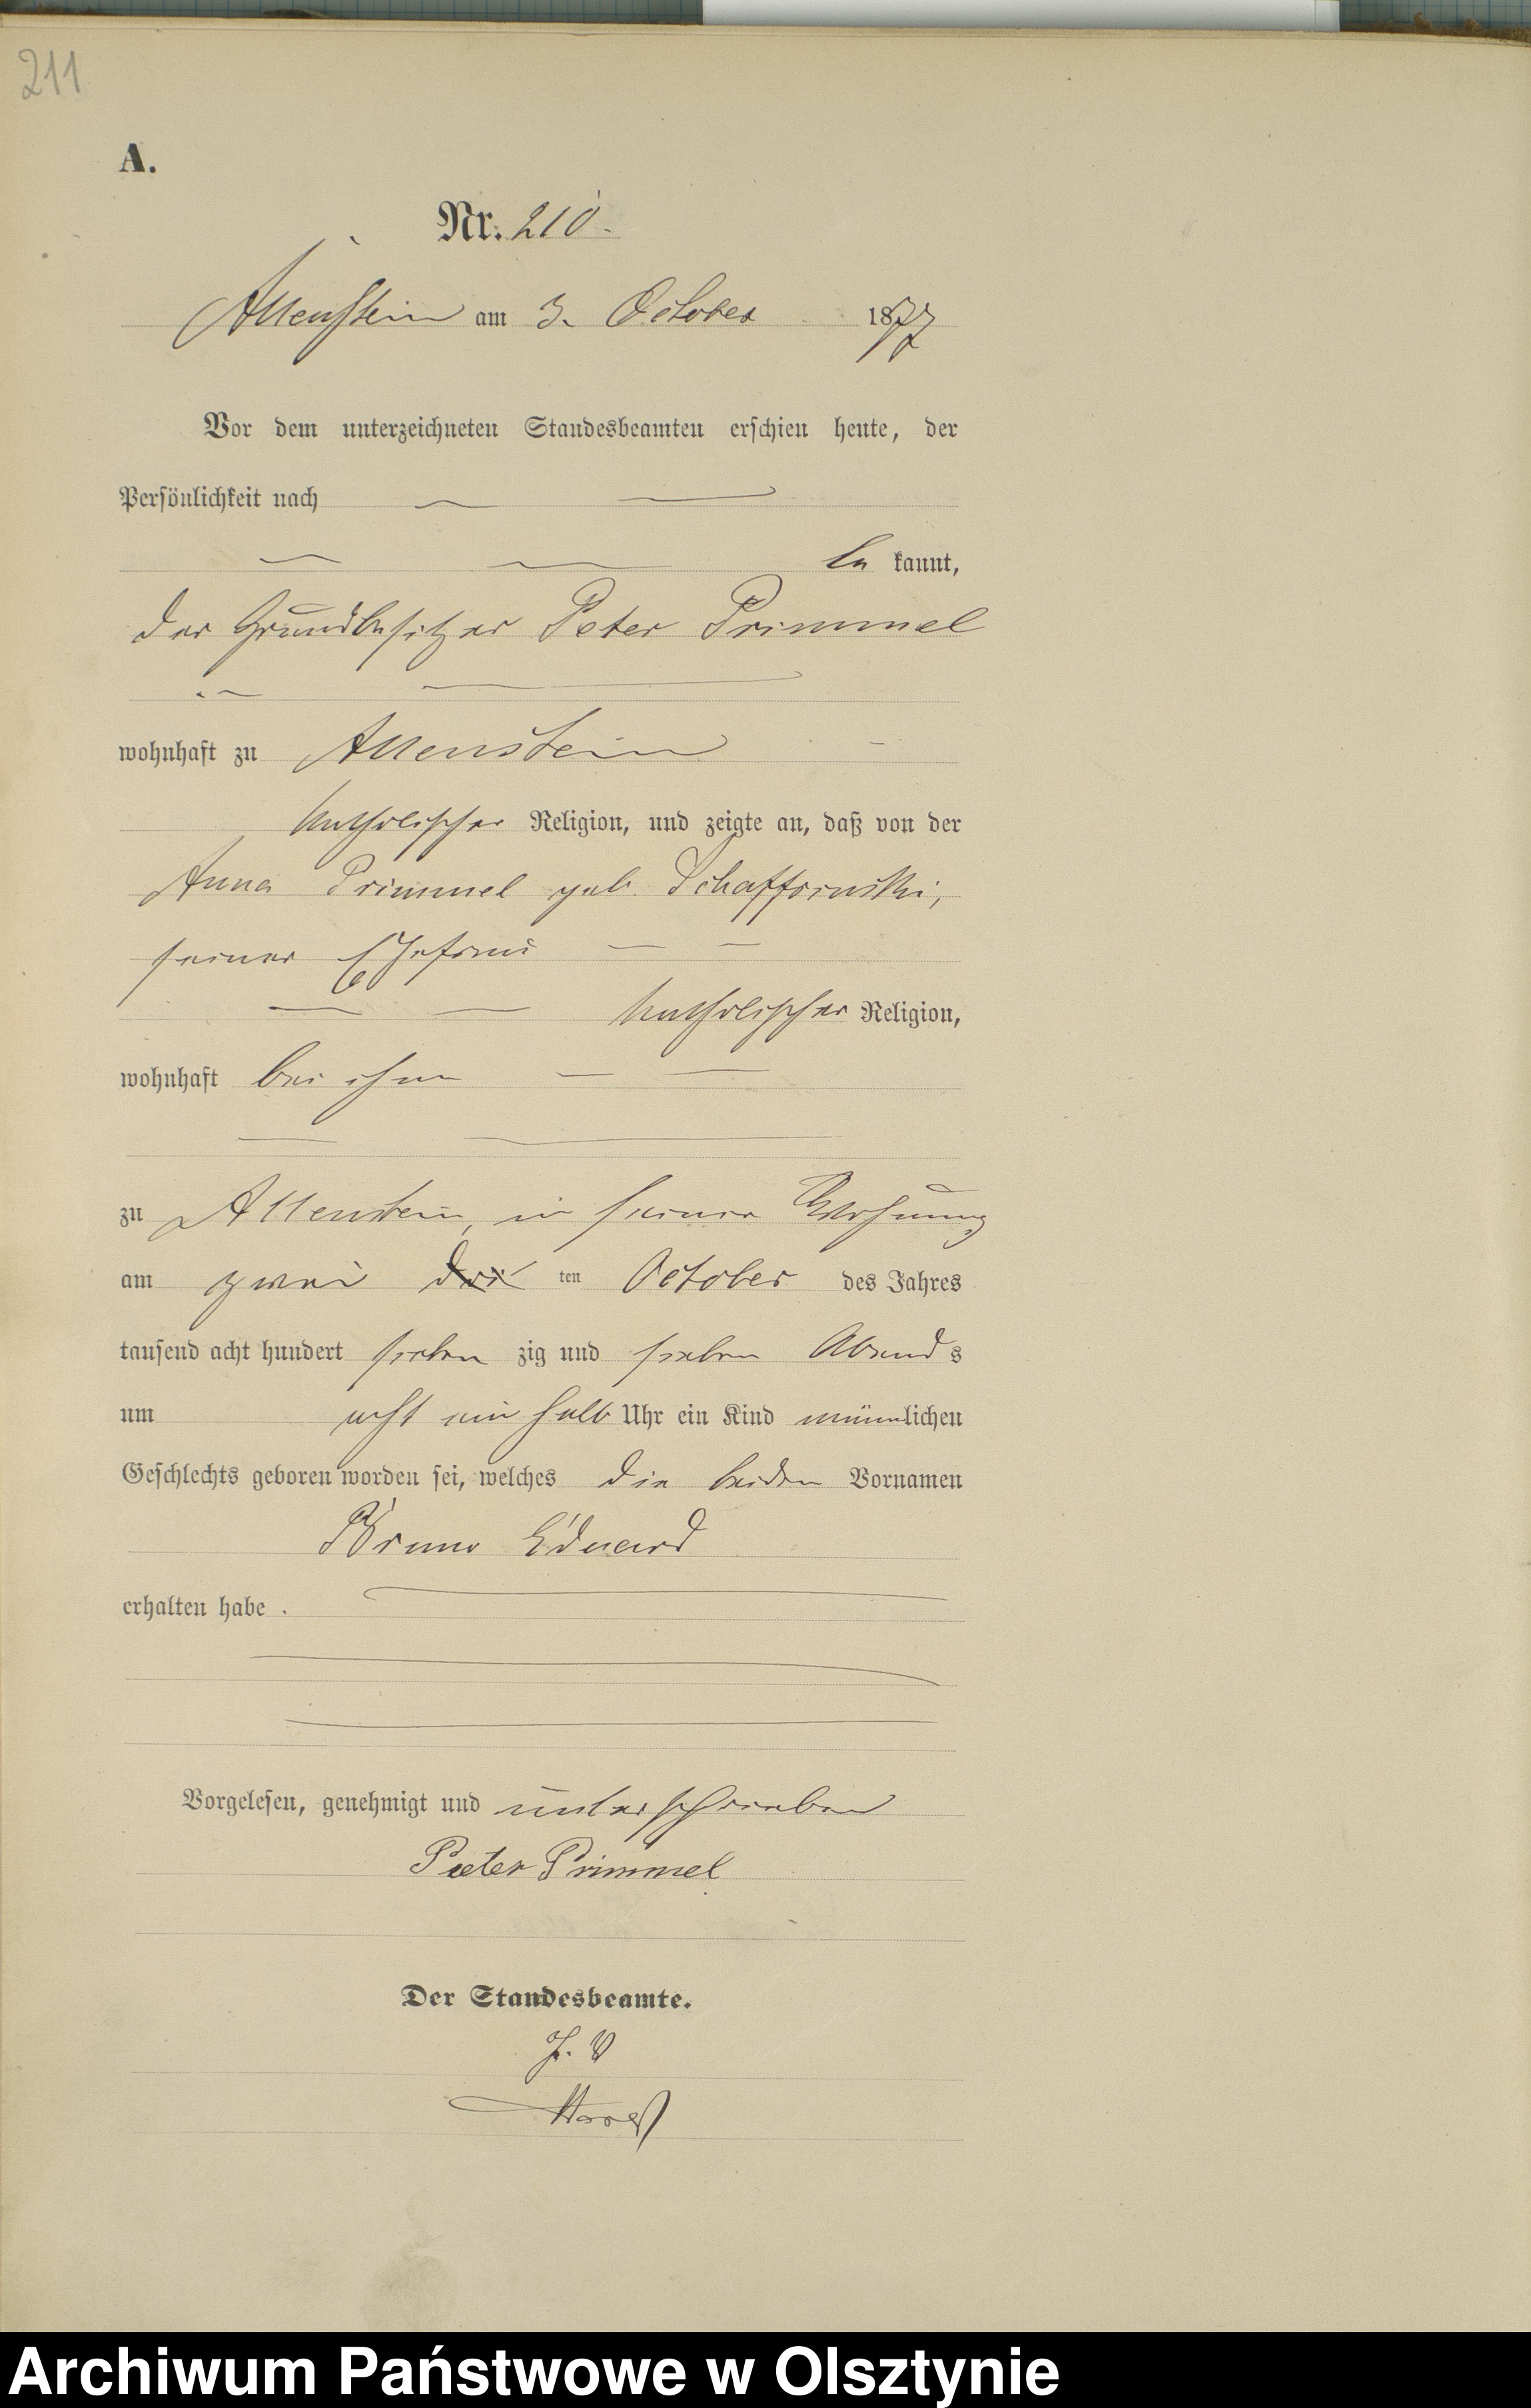 211
A.
Nr. 210.
Allenstein am 3. October 1877
Vor dem unterzeichneten Standesbeamten erschien heute, der
Persönlichkeit nach
be kannt,
der Grundbesitzer Peter Primmel
wohnhaft zu Allenstein
katholischer Religion, und zeigte an, daß von der
Anna Primmel geb. Schaffrinski,
seiner Ehefrau
katholischer Religion,
wohnhaft bei ihm
zu Allenstein, in seiner Wohnung
am zwei ten October des Jahres
tausend acht hundert sieben zig und sieben Abends
um acht ein halb Uhr ein Kind männlichen
Geschlechts geboren worden sei, welches die beiden Vornamen
Bruno Eduard
erhalten habe.
Vorgelesen, genehmigt und unterschrieben
Peter Primmel
Der Standesbeamte.
J. V
Archiwum Państwowe w Olsztynie